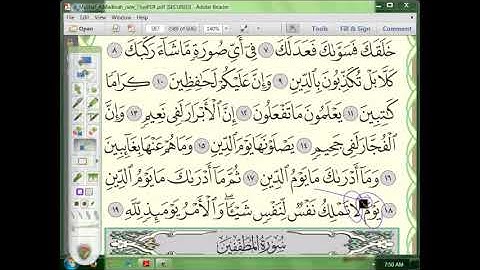 Mushaf_AlMadinah_new_TypPDF.pdf [SECURED] - Adobe Reader
Open
587
(589 of 640)
140%
Tools
Fill & Sign
Comment
خَلَقَكَ فَسَوَّىٰكَ فَعَدَلَكَ ٧ فِىٓ أَىِّ صُورَةٍ مَّا شَآءَ رَكَّبَكَ ٨
كَلَّا بَلْ تُكَذِّبُونَ بِٱلدِّينِ ٩ وَإِنَّ عَلَيْكُمْ لَحَٰفِظِينَ ١٠ كِرَامًا
كَٰتِبِينَ ١١ يَعْلَمُونَ مَا تَفْعَلُونَ ١٢ إِنَّ ٱلْأَبْرَارَ لَفِى نَعِيمٍ ١٣ وَإِنَّ
ٱلْفُجَّارَ لَفِى جَحِيمٍ ١٤ يَصْلَوْنَهَا يَوْمَ ٱلدِّينِ ١٥ وَمَا هُمْ عَنْهَا بِغَآئِبِينَ
١٦ وَمَآ أَدْرَىٰكَ مَا يَوْمُ ٱلدِّينِ ١٧ ثُمَّ مَآ أَدْرَىٰكَ مَا يَوْمُ ٱلدِّينِ
١٨ يَوْمَ لَا تَمْلِكُ نَفْسٌ لِّنَفْسٍ شَيْـًٔا ۖ وَٱلْأَمْرُ يَوْمَئِذٍ لِّلَّهِ ١٩
سُورَةُ المُطَفِّفِينَ
7:50 AM